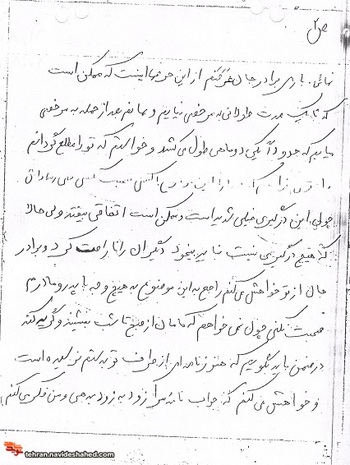 ص ۲
نمائی. باری برادر جان غرضم از این حرفها اینست که ممکن است
که تا یک مدت طولانی به مرخصی نیایم و ما بعد از حمله به مرخصی
میاییم که حدود یکی دو ماهی طول می کشد و خواستم که تو را مطلع گردانم
این
ولی این درگیری خیلی شدید است و ممکن است اتفاقی بیفتد ولی حالا
که هیچ درگیری نیست نباید بیخود دیگران را ناراحت کرد و برادر
جان از تو خواهش می کنم راجع به این موضوع به هیچ وجه با پدر و مادرم
صحبت نکنی چون نمی خواهم که مامان از صبح تا شب بنشیند و گریه کند
در ضمن باید بگویم که هنوز نامه ای از طرف تو به دستم نرسیده است
و خواهش می کنم که جواب نامه مرا زود به زود بدهی و من فکر می کنم
tehran.navideshahed.com